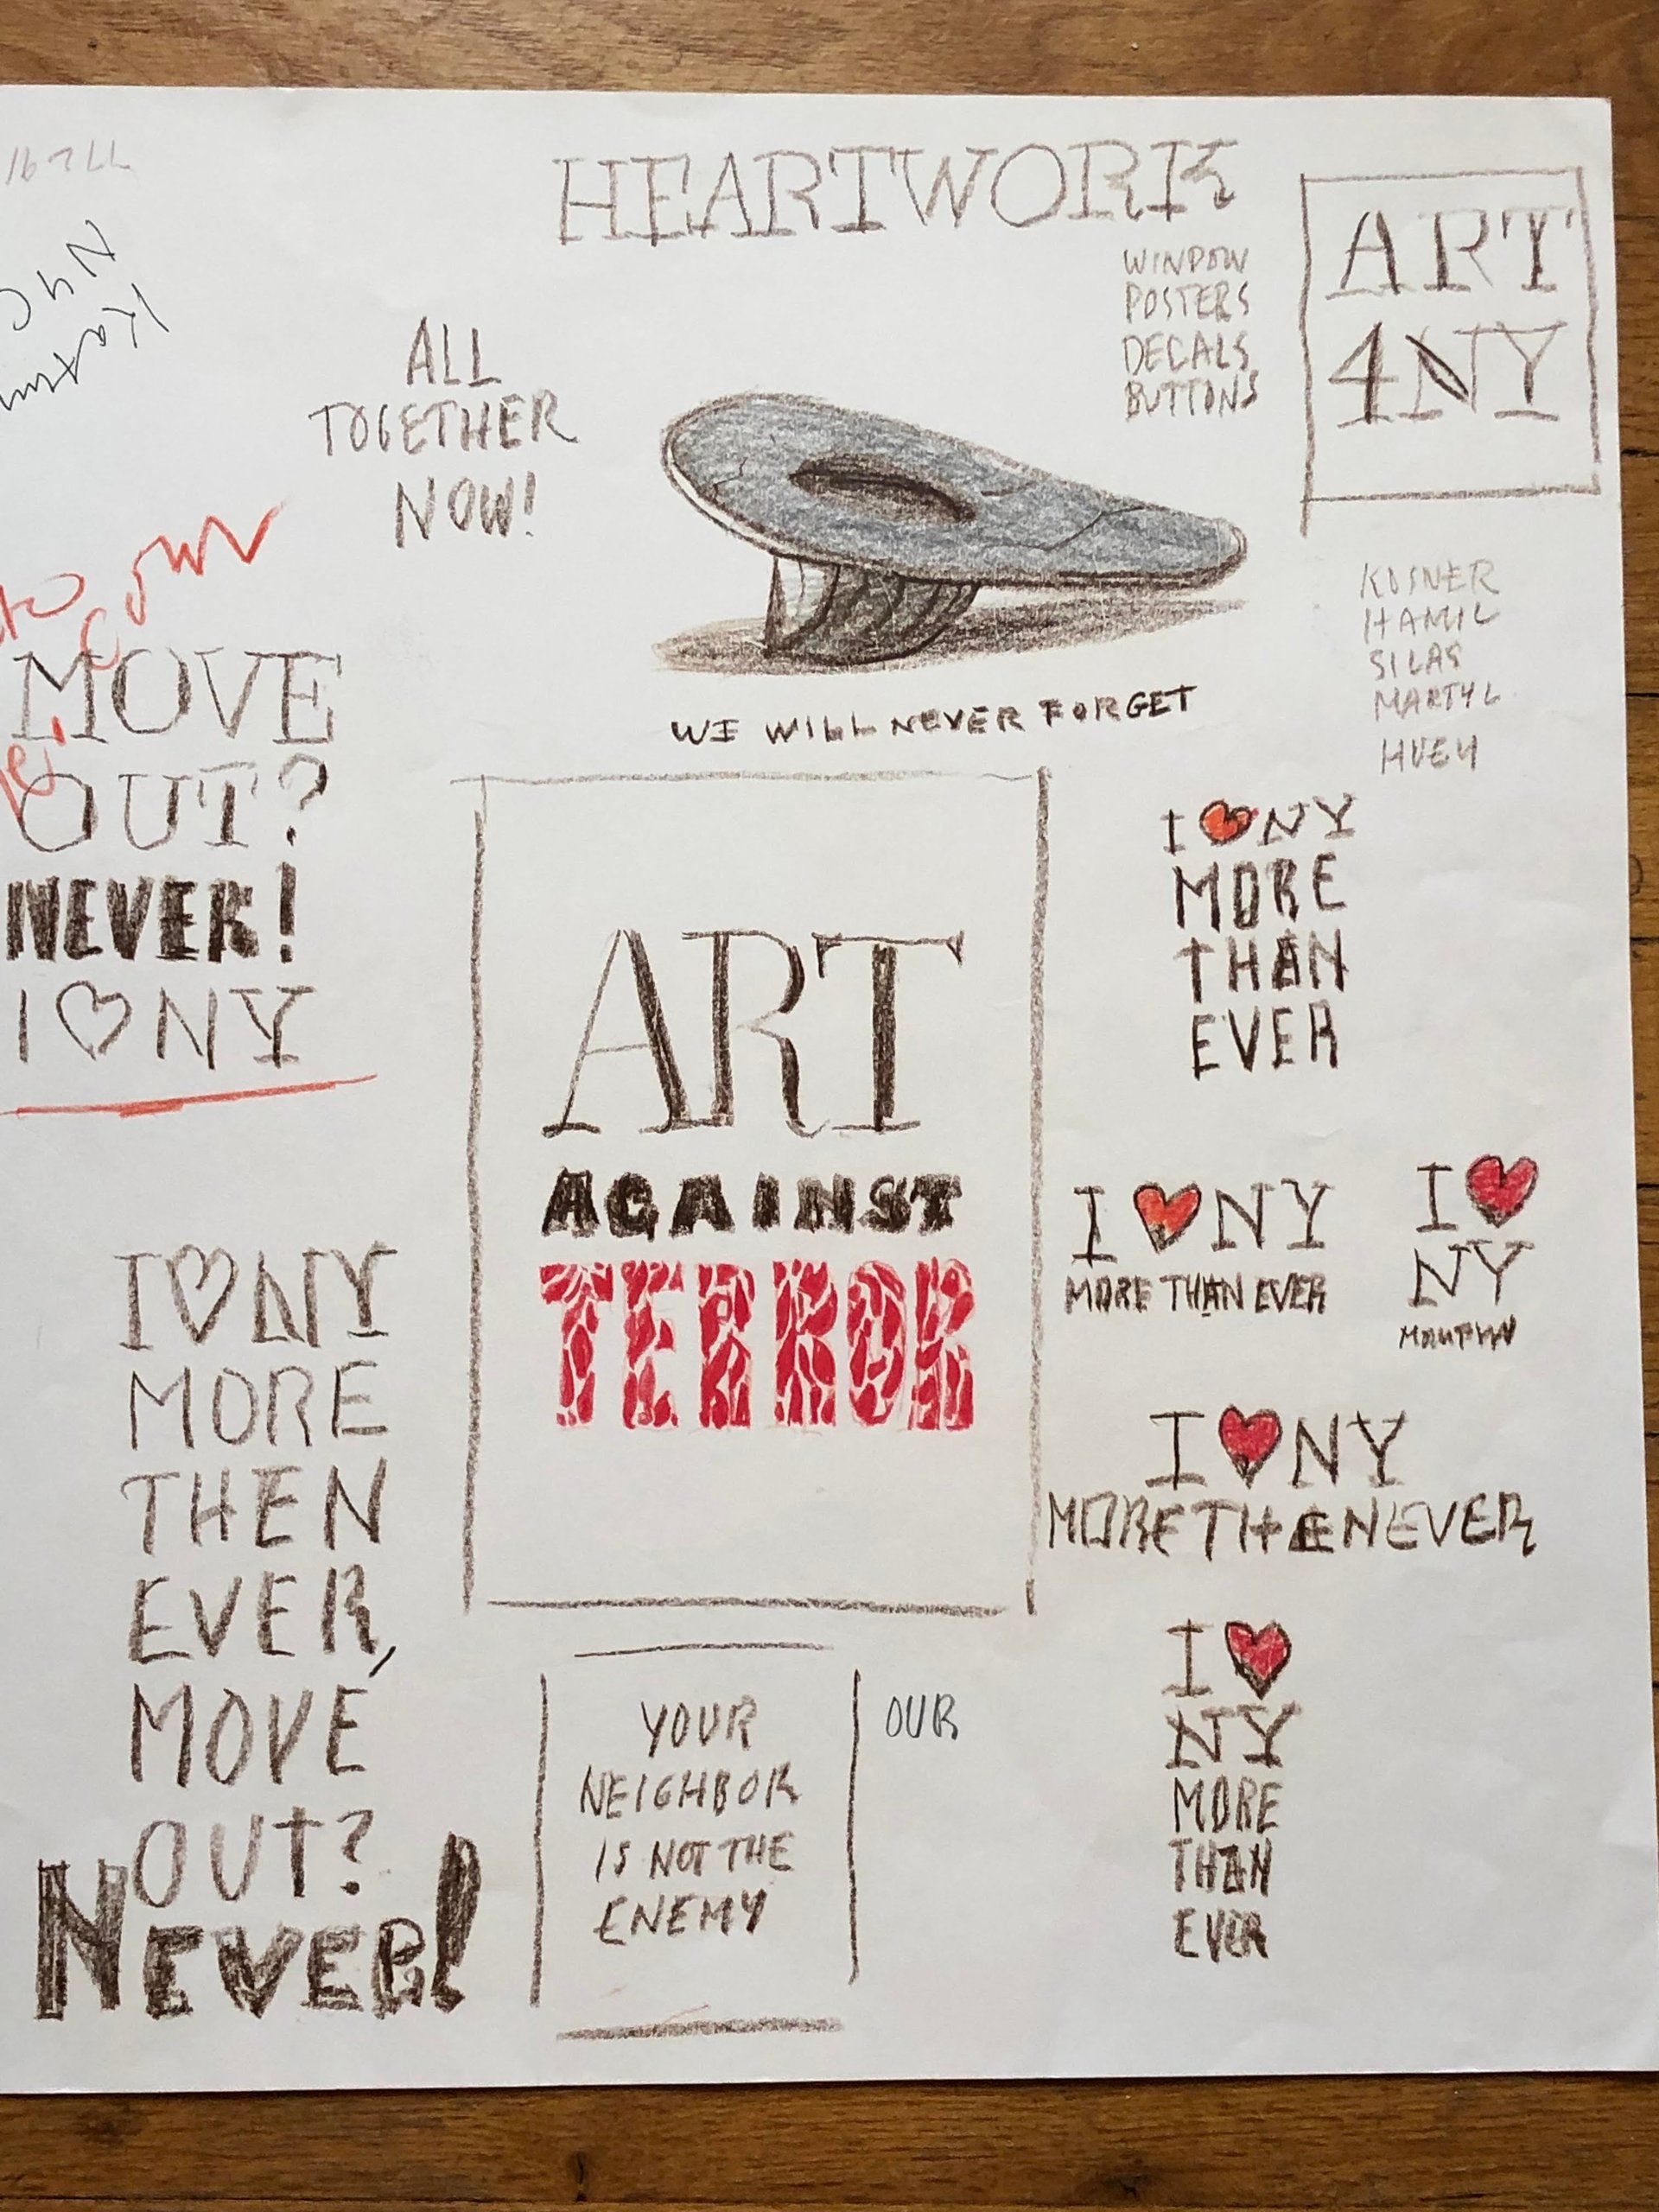 HEARTWORK
WINDOW
POSTERS
DECALS
BUTTONS
ART
4NY
NYC
ALL
TOGETHER
NOW!
WE WILL NEVER FORGET
KOSNER
HAMIL
SILAS
MARTYL
HUEY
MOVE
OUT?
NEVER!
I ♡ NY
I ♡ NY
MORE
THEN
EVER,
MOVE
OUT?
NEVER!
ART
AGAINST
TERROR
YOUR
NEIGHBOR
IS NOT THE
ENEMY
OUR
I ♥ NY
MORE
THAN
EVER
I ♥ NY
MORE THAN EVER
I ♥
NY
I ♥ NY
MORE THEN EVER
I ♥
NY
MORE
THAN
EVER